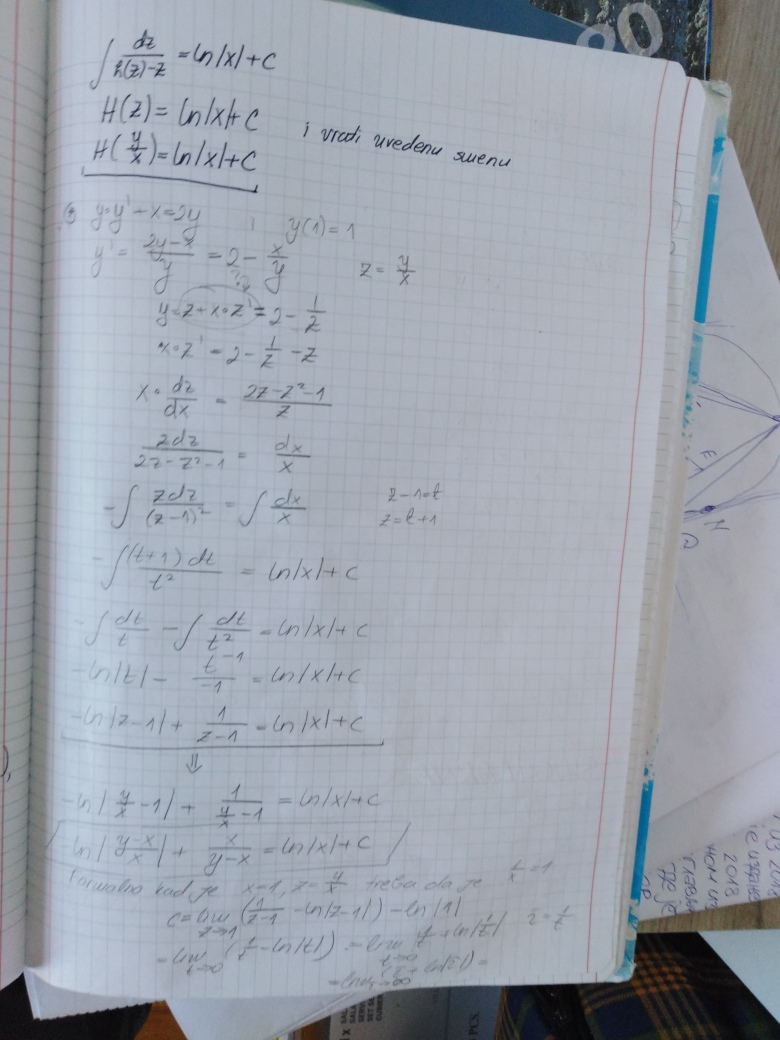 ∫ dz/(h(z)-z) = ln|x|+C
H(z) = ln|x|+C
H(y/x) = ln|x|+C
i vrati uvedenu smenu
y·y' + x = 2y ; y(1)=1
y' = (2y-x)/y = 2 - x/y   z = y/x
z + x·z' = 2 - 1/z
x·z' = 2 - 1/z - z
x· dz/dx = (2z-z²-1)/z
zdz/(2z-z²-1) = dx/x
-∫ zdz/(z-1)² = ∫ dx/x   z-1=t
z=t+1
-∫ (t+1)dt/t² = ln|x|+C
-∫ dt/t - ∫ dt/t² = ln|x|+C
-ln|t| - t⁻¹/-1 = ln|x|+C
-ln|z-1| + 1/(z-1) = ln|x|+C
⇓
-ln|y/x -1| + 1/(y/x -1) = ln|x|+C
ln|(y-x)/x| + x/(y-x) = ln|x|+C
Formalno kad je x=1, z=y/x treba da je
C = lim z→1 (1/(z-1) - ln|z-1|) - ln|1|
= lim t→0 (1/t - ln|t|) =
80
E
N
2013
PCS.